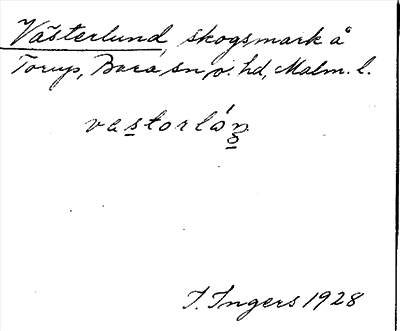 Västerlund, skogsmark å
Torup, Bara sn o. hd, Malm. l.
vastorlán
I. Ingers 1928